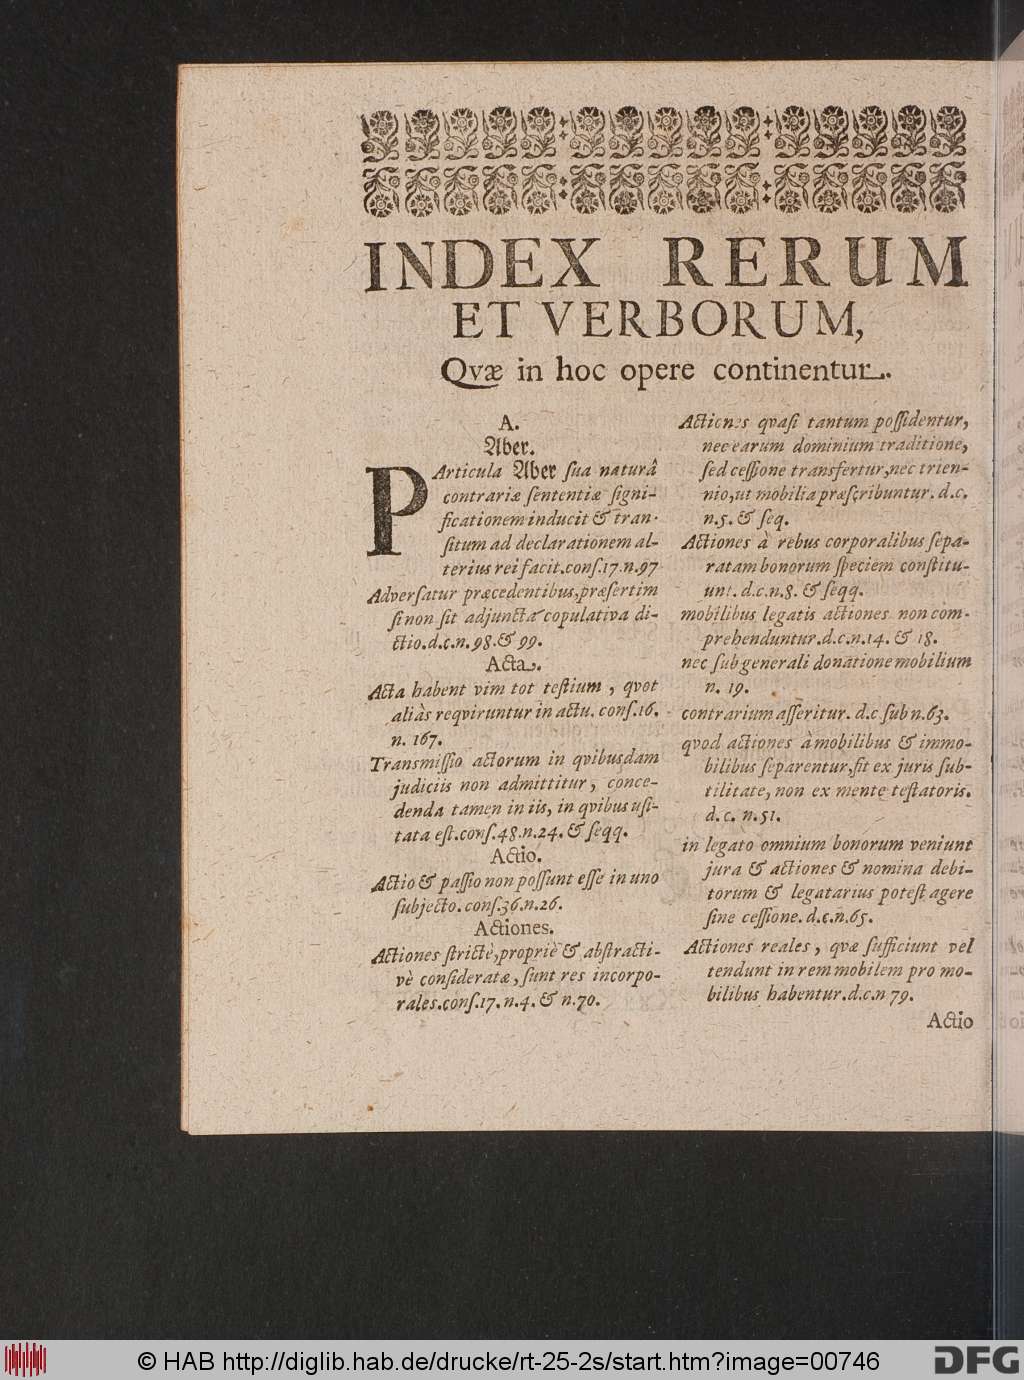 INDEX RERUM
ET VERBORUM,
Qvæ in hoc opere continentur.
A.
Aber.
PArticula Aber ſua naturâ
contrariæ ſententiæ ſigni-
ficationem inducit & tran-
ſitum ad declarationem al-
terius rei facit. conſ. 17. n. 97
Adverſatur præcedentibus, præſertim
ſi non ſit adjuncta copulativa di-
ctio. d. c. n. 98. & 99.
Acta.
Acta habent vim tot teſtium, qvot
aliàs reqviruntur in actu. conſ. 16.
n. 167.
Transmiſſio actorum in qvibusdam
judiciis non admittitur, conce-
denda tamen in iis, in qvibus uſi-
tata eſt. conſ. 48. n. 24. & ſeqq.
Actio.
Actio & paſſio non poſſunt eſſe in uno
ſubjecto. conſ. 36. n. 26.
Actiones.
Actiones ſtrictè, propriè & abſtracti-
vè conſideratæ, ſunt res incorpo-
rales. conſ. 17. n. 4. & n. 70.
Actiones qvaſi tantum poſſidentur,
nec earum dominium traditione,
ſed ceſſione transfertur, nec trien-
nio, ut mobilia præſcribuntur. d. c.
n. 5. & ſeq.
Actiones à rebus corporalibus ſepa-
ratam bonorum ſpeciem conſtitu-
unt. d. c. n. 8. & ſeqq.
mobilibus legatis actiones non com-
prehenduntur. d. c. n. 14. & 18.
nec ſub generali donatione mobilium
n. 19.
contrarium aſſeritur. d. c ſub n. 63.
qvod actiones à mobilibus & immo-
bilibus ſeparentur, fit ex juris ſub-
tilitate, non ex mente teſtatoris.
d. c. n. 51.
in legato omnium bonorum veniunt
jura & actiones & nomina debi-
torum & legatarius poteſt agere
ſine ceſſione. d. c. n. 65.
Actiones reales, qvæ ſufficiunt vel
tendunt in rem mobilem pro mo-
bilibus habentur. d. c. n 79.
Actio
© HAB http://diglib.hab.de/drucke/rt-25-2s/start.htm?image=00746
DFG